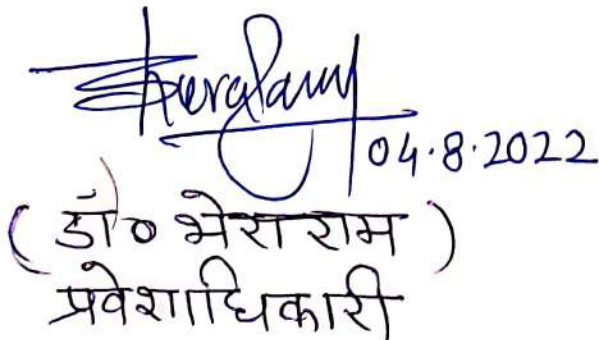 04.8.2022
(डॉ० भेराराम)
प्रवेशाधिकारी